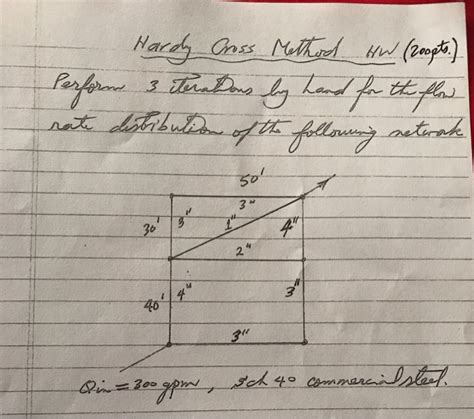 Hardy Cross Method HW (200pts.)
Perform 3 iterations by hand for the flow
rate distribution of the following network
50'
3"
30' 3" 1" 4"
2"
40' 4" 3"
3"
Qin = 300 gpm, Sch 40 commercial steel.